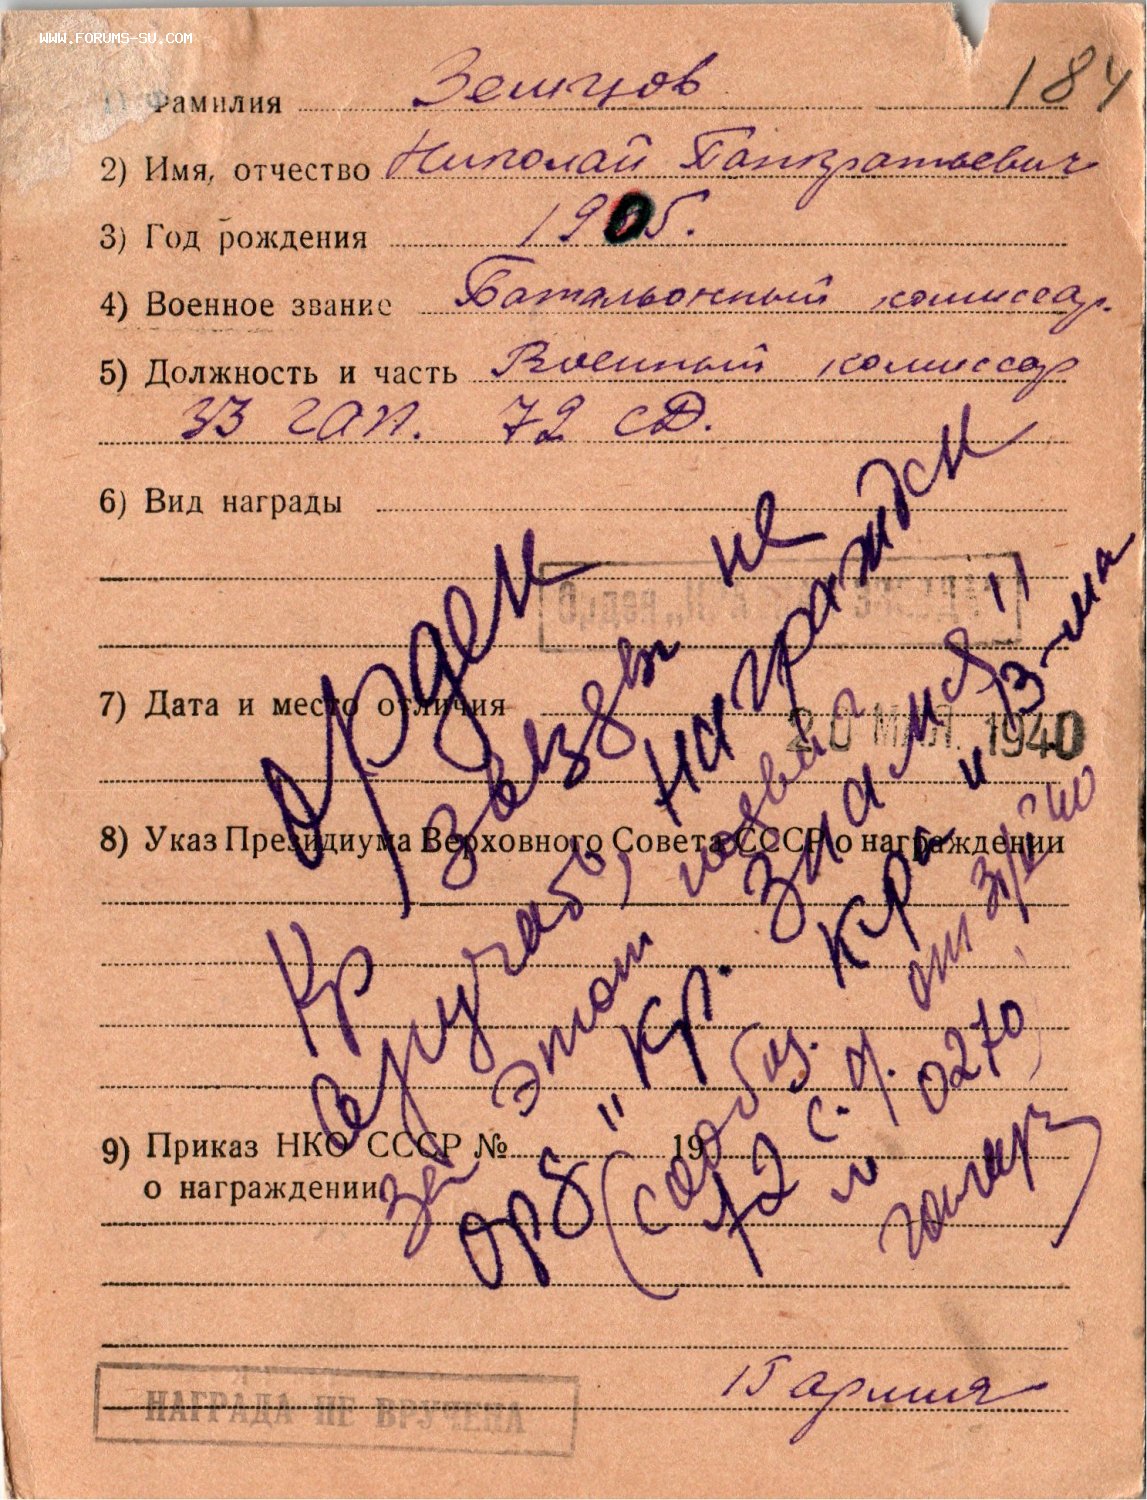 WWW.FORUMS-SU.COM
184
Фамилия Земцов
2) Имя, отчество Николай Панкратьевич
3) Год рождения 1905.
4) Военное звание Батальонный комиссар.
5) Должность и часть Военный комиссар
33 гап. 72 сД.
6) Вид награды
Орден „КРАСНАЯ ЗВЕЗДА“
7) Дата и место отличия
20 МАЯ 1940
8) Указ Президиума Верховного Совета СССР о награждении
9) Приказ НКО СССР № 19
о награждении
Орден
Кр звезды не
вручать, награжден
За этот подвиг
орд "Кр. Знамя"
(сообщ. Кр и
72 с.д. от
и 0270
13 армия
НАГРАДА НЕ ВРУЧЕНА